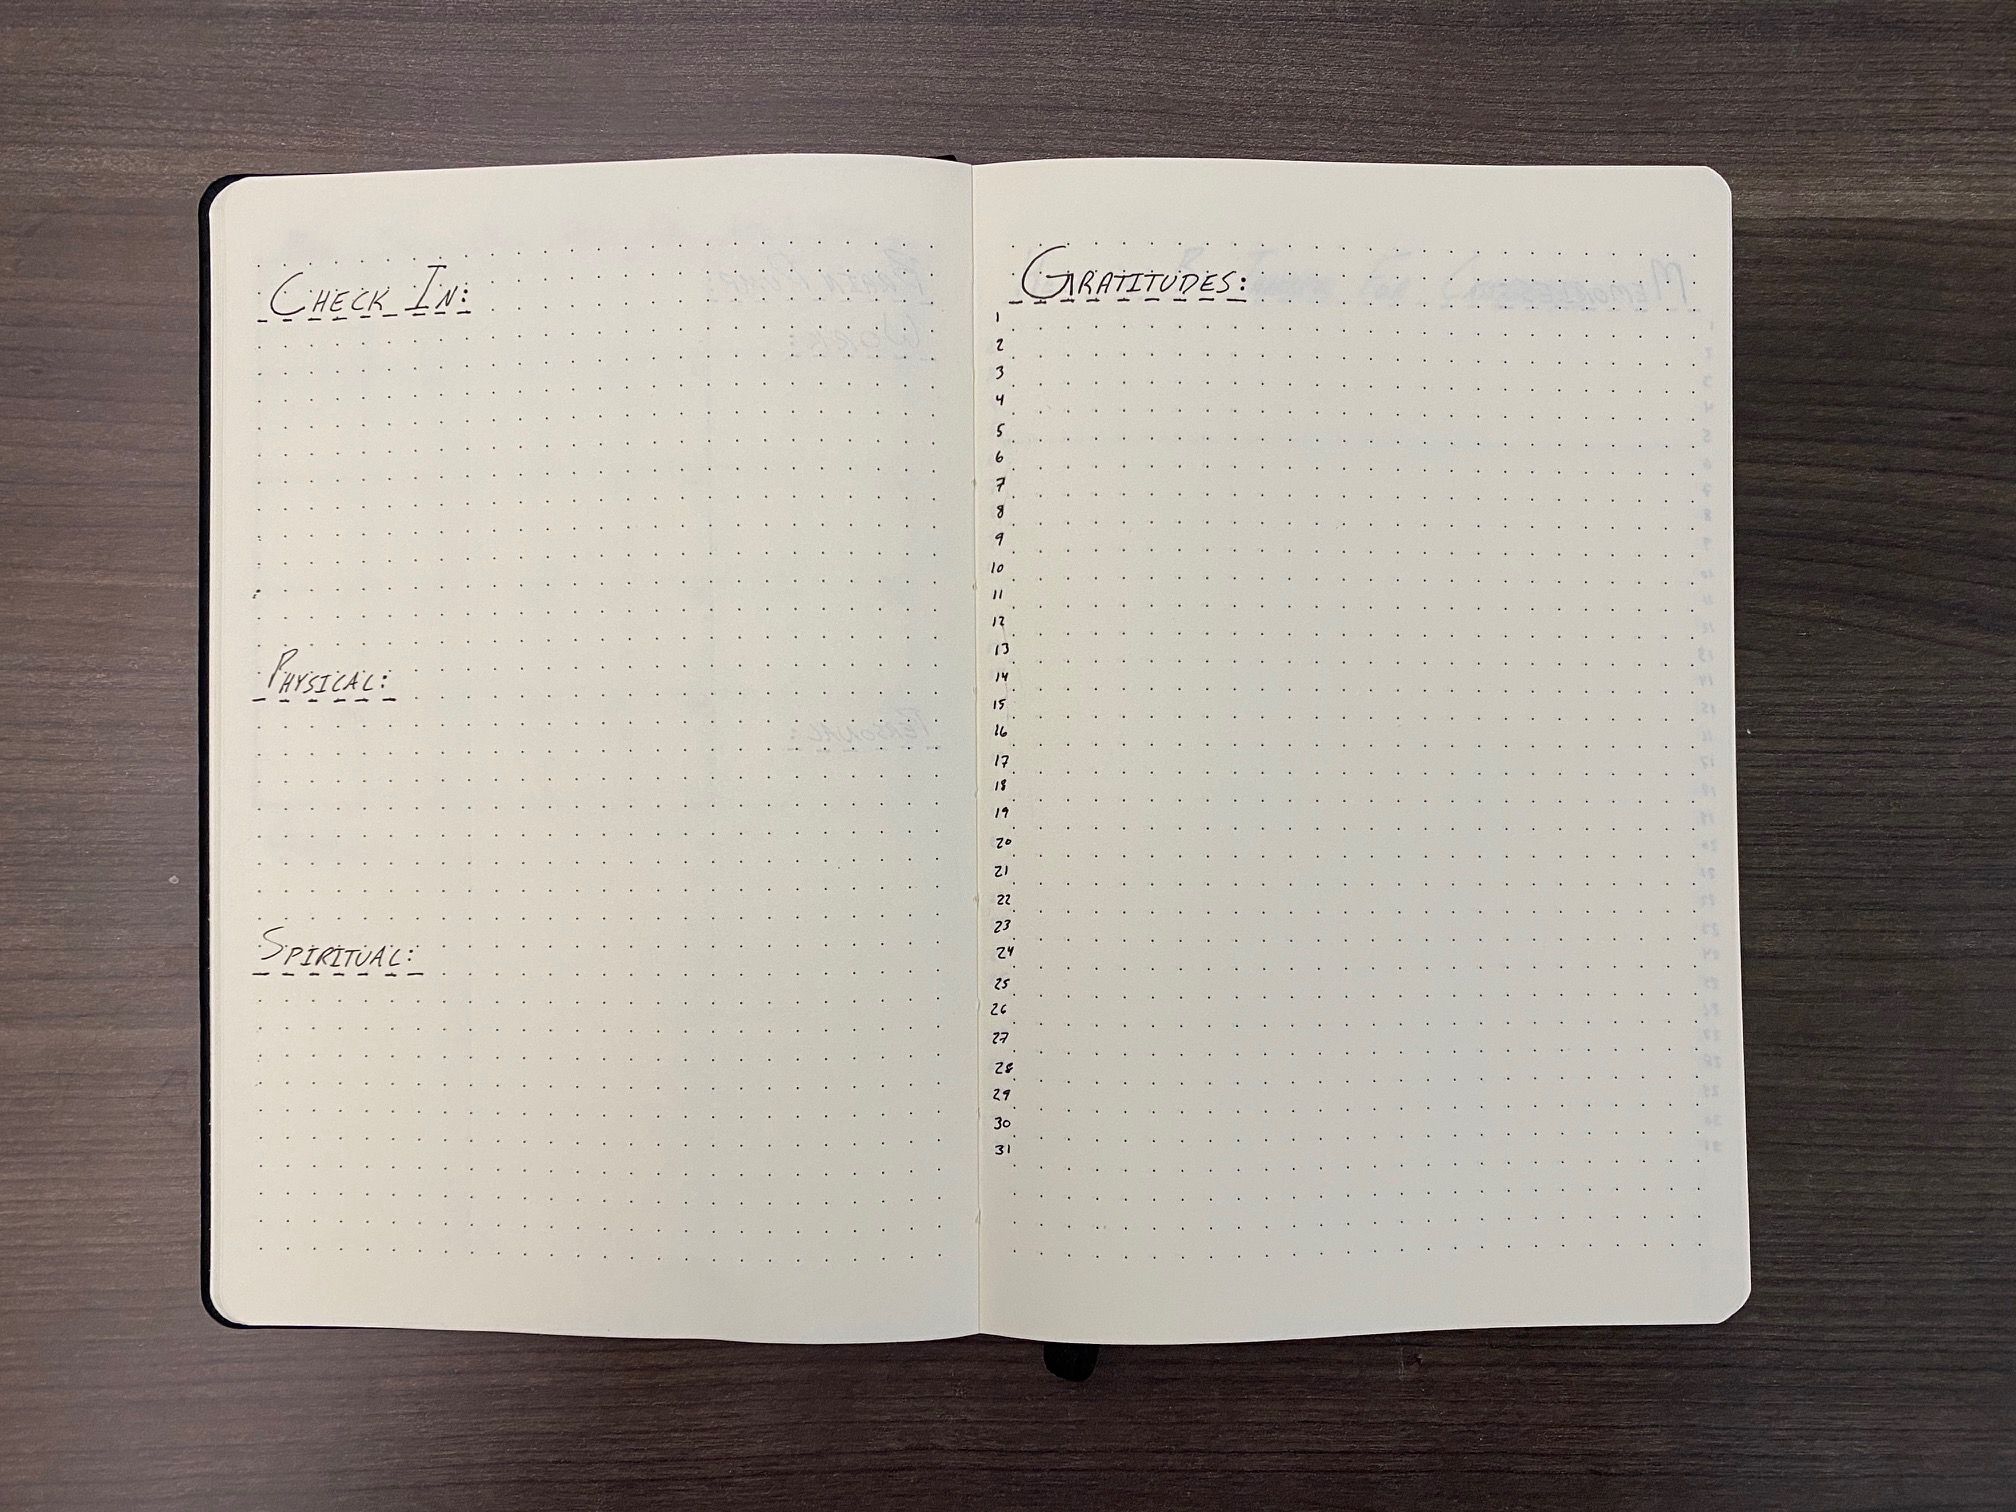 CHECK IN:
PHYSICAL:
SPIRITUAL:
GRATITUDES:
1
2
3
4
5
6
7
8
9
10
11
12
13
14
15
16
17
18
19
20
21
22
23
24
25
26
27
28
29
30
31